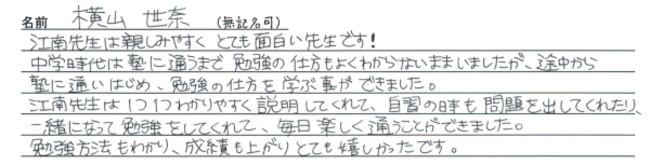 名前 横山 世奈 (無記名可)
江南先生は親しみやすく とても面白い先生です!
中学時代は塾に通うまで 勉強の仕方もよくわからないままいましたが、途中から
塾に通いはじめ、勉強の仕方を学ぶ事ができました。
江南先生は1つ1つわかりやすく説明してくれて、自習の時も問題を出してくれたり、
一緒になって勉強をしてくれて、毎日楽しく通うことができました。
勉強方法もわかり、成績も上がりとても嬉しかったです。